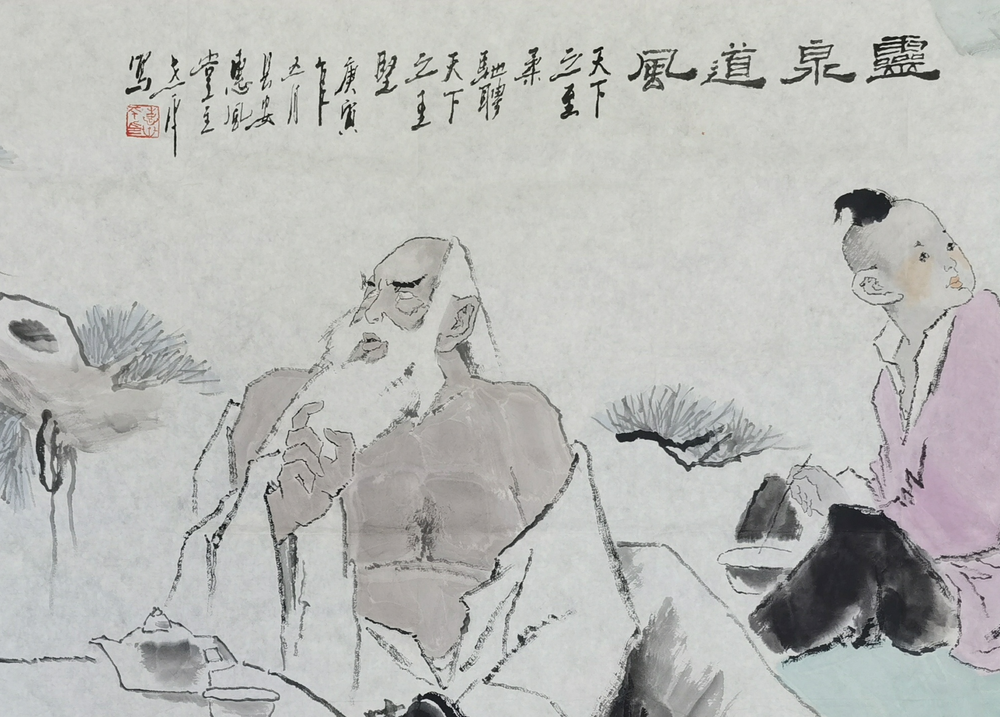 靈泉道風
天下
之至
柔
馳聘
天下
之至
堅
庚寅
年
五月
長安
惠風
堂主
寫